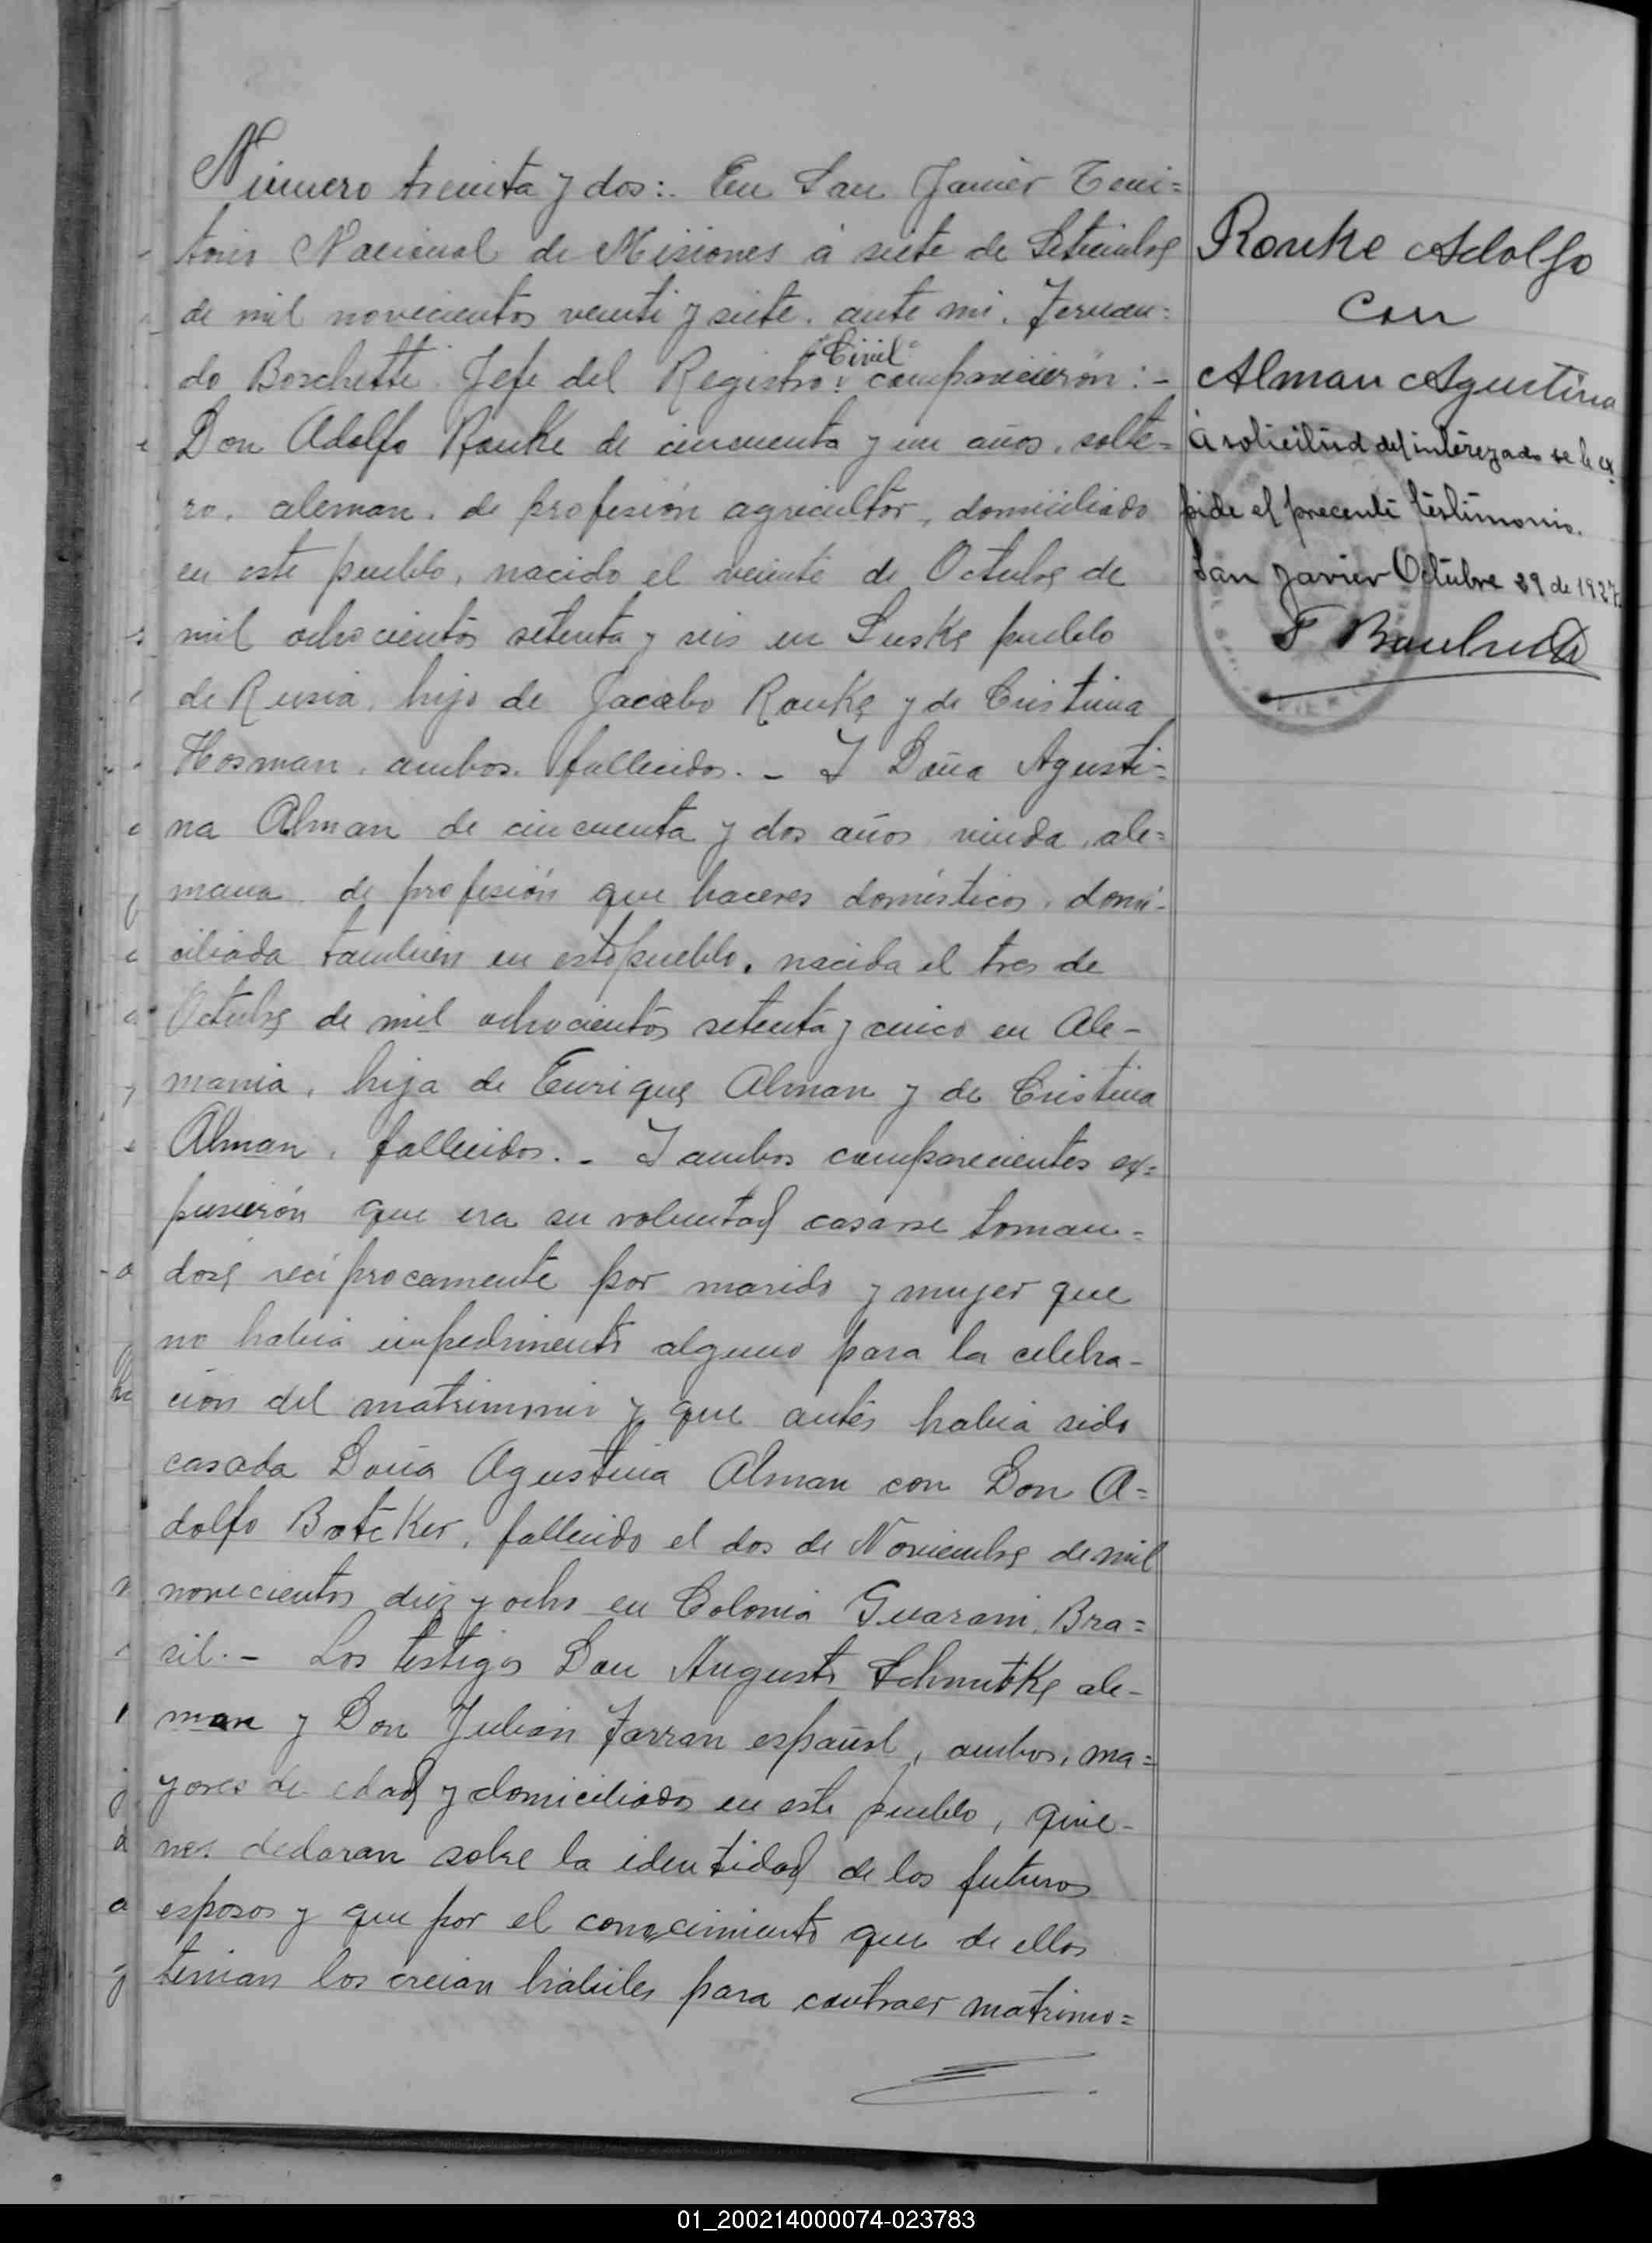 Número treinta y dos:. En San Javier Terri=
torio Nacional de Misiones á siete de Setiembre
de mil novecientos veinti y siete. ante mi. Fernan=
do Boschetti. Jefe del Registro "Civil" comparecieron:-
Don Adolfo Rouke de cincuenta y un años, solte=
ro. aleman. de profesión agricultor, domiciliado
en este pueblo, nacido el veinte de Octubre de
mil ochocientos setenta y seis en Luske pueblo
de Rusia, hijo de Jacobo Rouke y de Cristina
Hosman, ambos. fallecidos. - Y Doña Agusti=
na Alman de cincuenta y dos años, viuda, ale=
mana. de profesión que haceres domésticos, domi-
ciliada tambien en este pueblo. nacida el tres de
Octubre de mil ochocientos setenta y cinco en Ale-
mania, hija de Enrique Alman y de Cristina
Alman, fallecidos. - Y ambos comparecientes ex=
pusierón que era su voluntad casarse toman=
dose recíprocamente por marido y mujer que
no habia impedimento alguno para la celebra-
ción del matrimonio y que antes habia sido
casada Doña Agustina Alman con Don A=
dolfo Botcker, fallecido el dos de Noviembre de mil
novecientos diez y ocho en Colonia Guarani, Bra=
sil.- Los testigos Don Augusto Schmitke ale-
man y Don Julián Farran español, ambos, ma=
yores de edad y domiciliados en este pueblo, quie-
nes declaran sobre la identidad de los futuros
esposos y que por el conocimiento que de ellos
tenian los creian habiles para contraer matrimo=
Rouke Adolfo
con
Alman Agustina
A solicitud del interezado se le ex
pide el precente testimonio.
San Javier Octubre 29 de 1927
F Boschetti
01_200214000074-023783